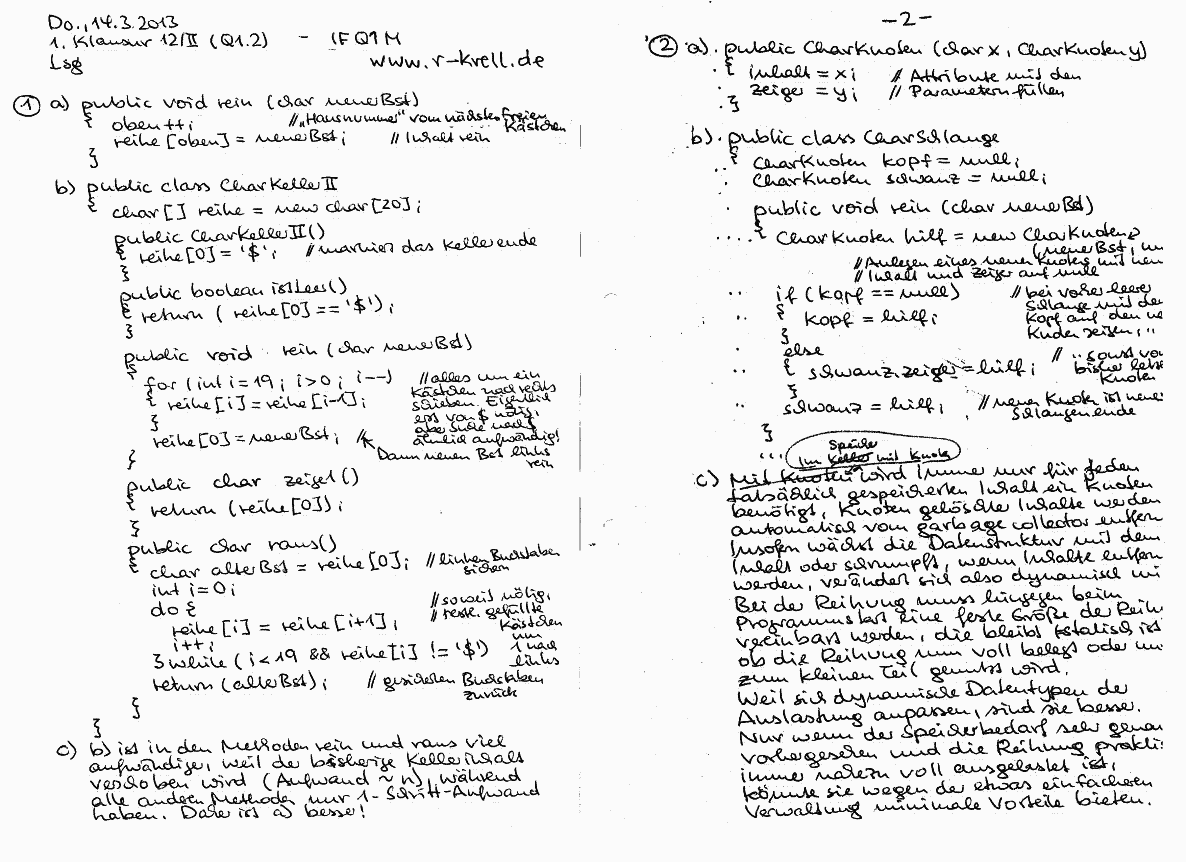 Do., 14.3.2013
1. Klausur 12/II (Q1.2) - IFQ1M
Lsg www.r-krell.de
① a) public void rein (char neuerBst)
{ oben++; // "Hausnummer" vom nächsten freien Kästchen
reihe [oben] = neuerBst; // Inhalt rein
}
b) public class CharKellerII
{ char[] reihe = new char[20];
public CharKellerII()
{ reihe[0] = '$'; // markiert das Kellerende
}
public boolean istLeer()
{ return ( reihe[0] == '$');
}
public void rein (char neuerBst)
{ for (int i = 19; i>0; i--) // alles um ein
{ reihe[i] = reihe[i-1]; Kästchen nach rechts
schieben. Eigentlich
} erst von $ nötig,
aber Suche nach $
reihe[0] = neuerBst; // ähnlich aufwändig!
} Dann neuen Bst links
rein
public char zeige1()
{ return (reihe[0]);
}
public char raus()
{ char alterBst = reihe[0]; // linken Buchstaben
int i=0; sichern
do { // soweit nötig,
reihe[i] = reihe[i+1]; // restl. gefüllte
i++; Kästchen um
} while (i<19 && reihe[i] != '$') 1 nach
links
return (alterBst); // gesicherten Buchstaben
zurück
}
}
c) b) ist in den Methoden rein und raus viel
aufwändiger, weil der bisherige Kellerinhalt
verschoben wird (Aufwand ~ n), während
alle anderen Methoden nur 1-Schritt-Aufwand
haben. Daher ist a) besser!
-2-
② a) public CharKnoten (char x, CharKnoten y)
{ inhalt = x; // Attribute mit den
zeiger = y; // Parametern füllen
}
b) public class CharSchlange
{ CharKnoten kopf = null;
CharKnoten schwanz = null;
public void rein (char neuerBst)
{ CharKnoten hilf = new CharKnoten
(neuerBst,
// Anlegen eines neuen Knotens mit
// Inhalt und Zeiger auf null
if (kopf == null) // bei vorher leerer
{ kopf = hilf; Schlange mit
Kopf auf den
} Knoten zeigen, ..
else // .. sonst
{ schwanz.zeiger = hilf; bisher
} Knoten
schwanz = hilf; // neuer Knoten ist
Schlangenende
}
...
Speicher
Im Keller mit Knoten
c) Mit Knoten wird immer nur für jeden
tatsächlich gespeicherten Inhalt ein Knoten
benötigt, Knoten gelöschter Inhalte werden
automatisch vom garbage collector
Insofern wächst die Datenstruktur mit dem
Inhalt oder schrumpft, wenn Inhalte
werden, verändert sich also dynamisch
Bei der Reihung muss hingegen beim
Programmstart eine feste Größe der
vereinbart werden, die bleibt (statisch
ob die Reihung nun voll belegt oder
zum kleinen Teil genutzt wird.
Weil sich dynamische Datentypen der
Auslastung anpassen, sind sie besser.
Nur wenn der Speicherbedarf sehr
vorhergesehen und die Reihung
immer nahezu voll ausgelastet ist,
könnte sie wegen der etwas einfacheren
Verwaltung minimale Vorteile bieten.